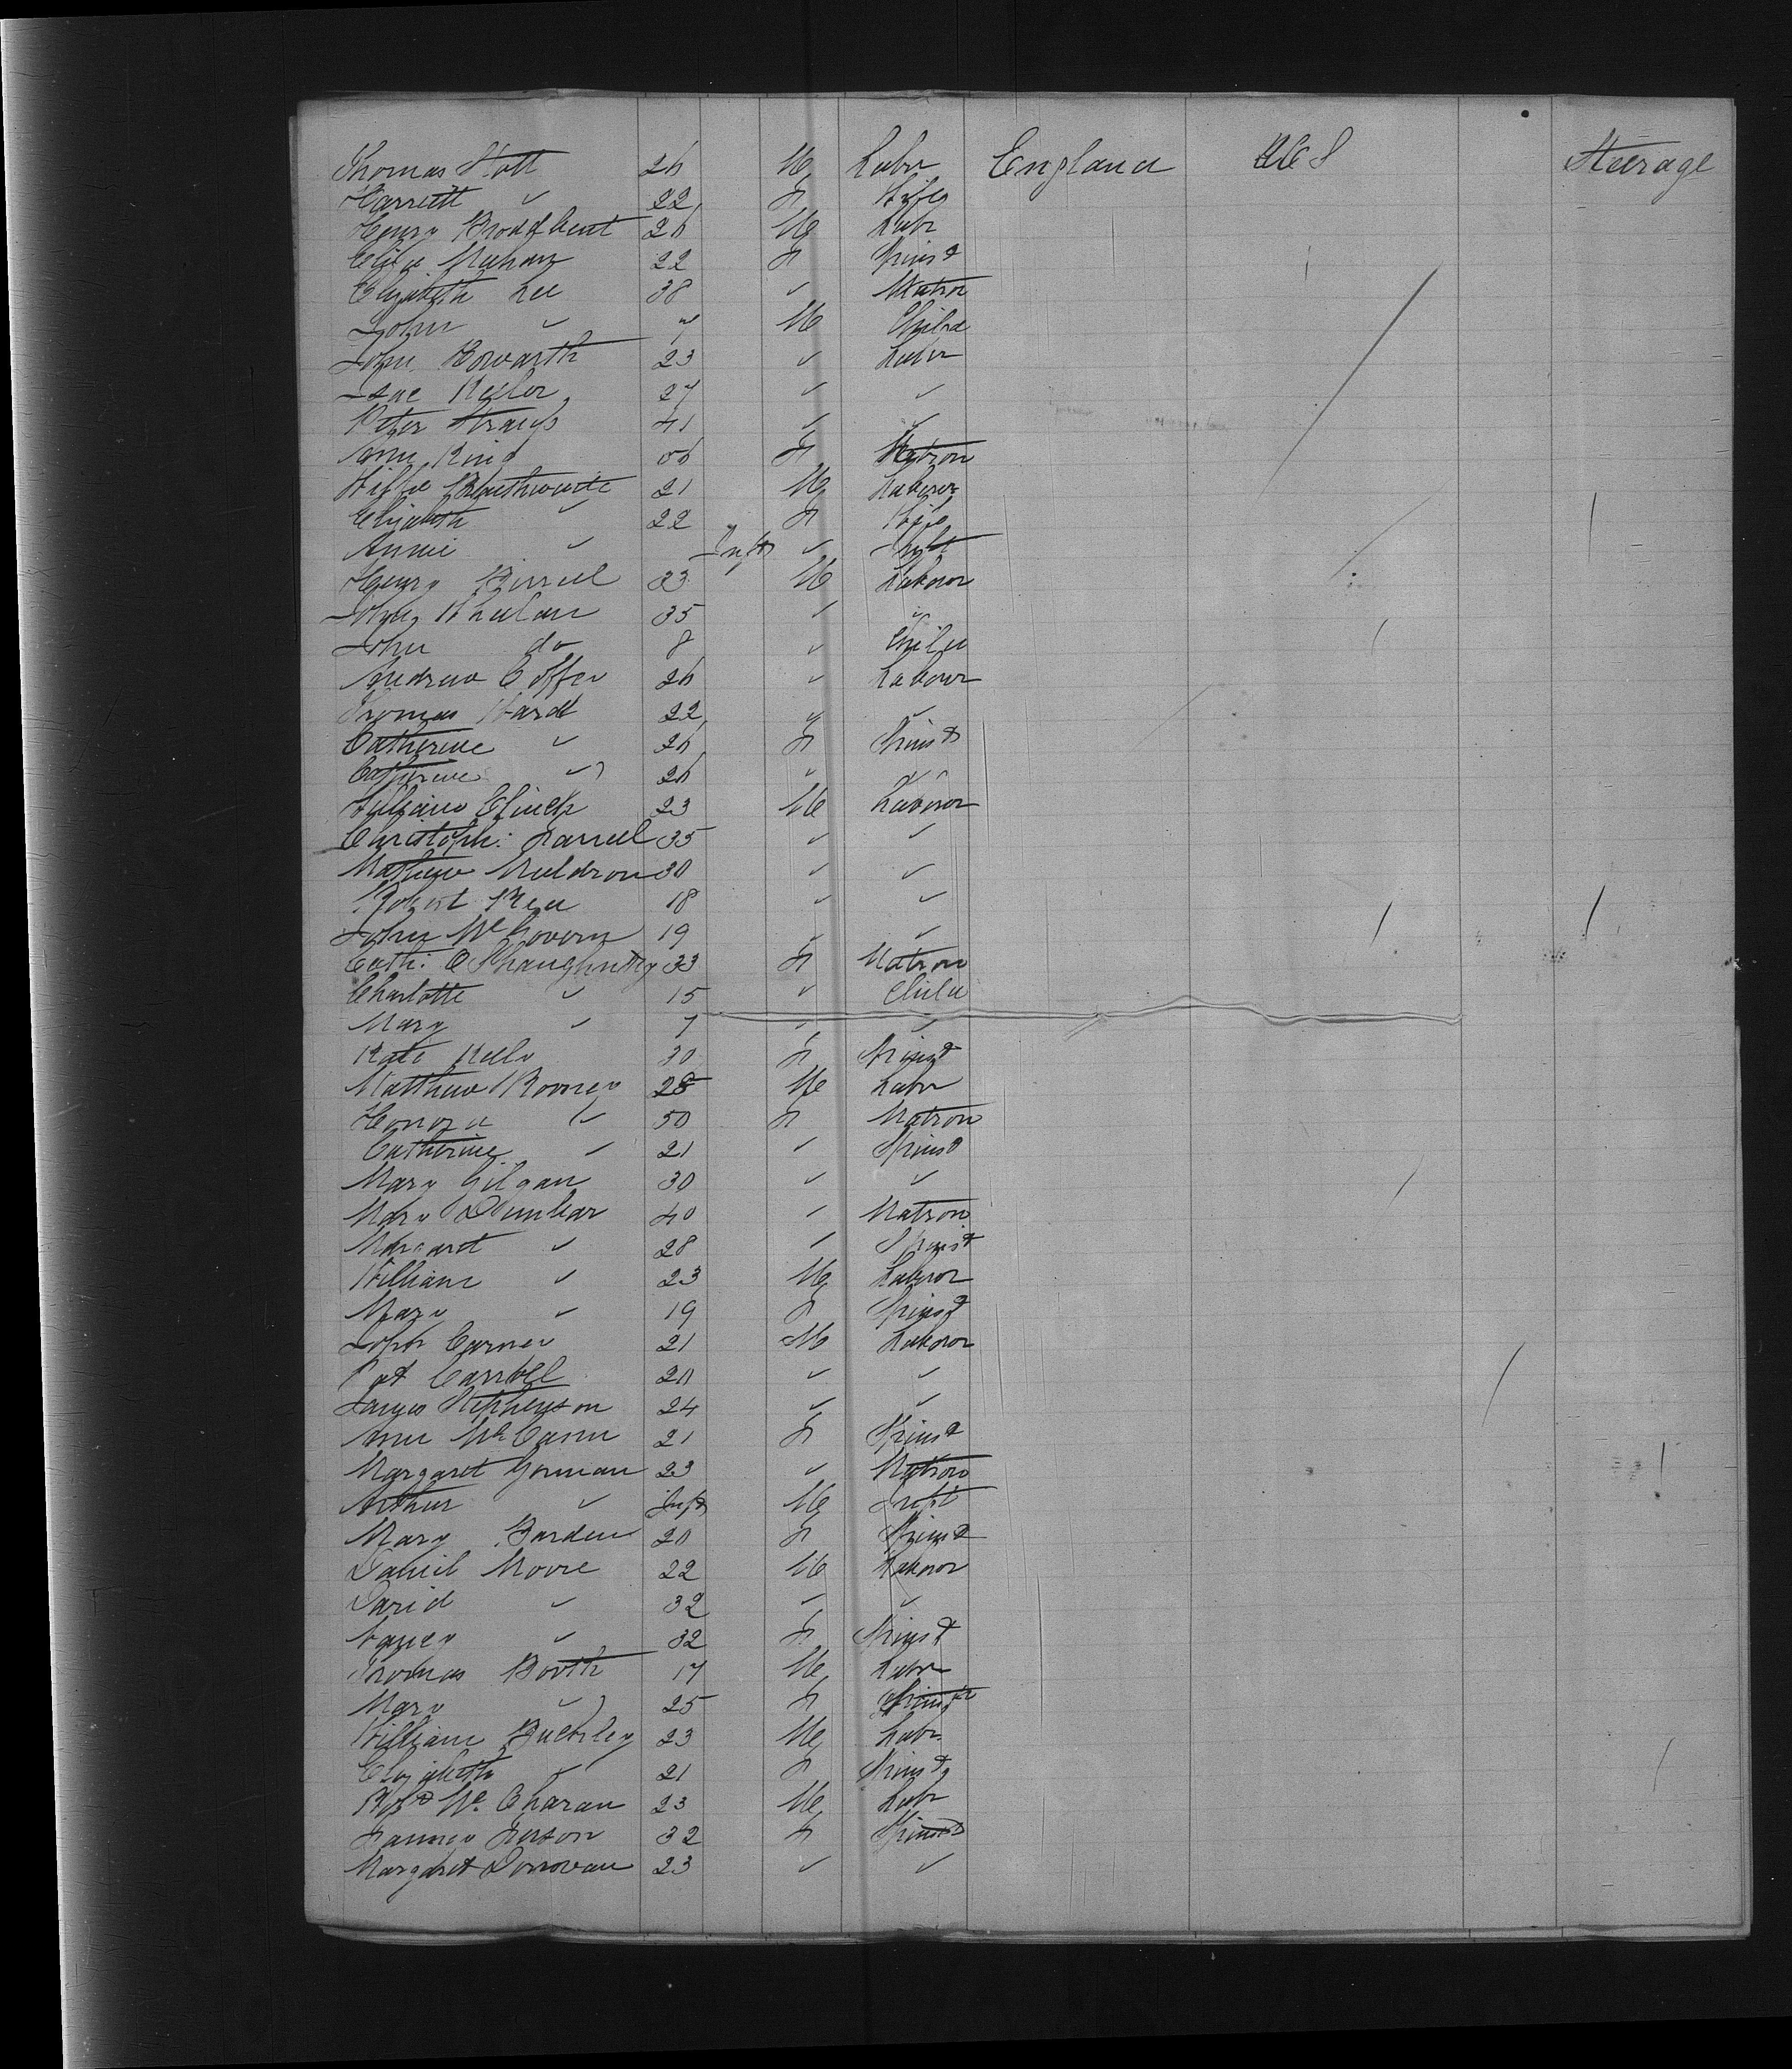 Thomas Stott 26 M Labr England U S Steerage
Harriett " 22 F Wife
Henry Broadbent 26 M Labr
Eliza 22 F Spinst
Elizabeth Lee 38 " Matron
John " M Child
John Howarth 23 " Labr
Isac 27 " "
Peter 41 " "
Ann King F Matron
Braithwaite 21 M Laborer
Elizabeth " 22 F Wife
Annie " Inft "
Henry 33 M Laborer
John Whelan 35 " "
John do 8 " Child
Andrew 26 " Laborer
Thomas Ward 22 " "
Catherine " 26 F Spinst
Catherine " 26 " "
William Clinch 23 M Laborer
Christoph: Farrell 35 " "
Mathew Muldron 30 " "
Robert 18 " "
John McGovern 19 " "
Cath: O'Shaughnessy 33 F Matron
Charlotte " 15 " Child
Mary " 7 " "
Kate Kelly 30 F Spinst
Matthew Rooney 28 M Labr
Honora " 50 F Matron
Catherine " 21 " Spinst
Mary Gilgan 30 " "
Mary Dunbar 40 " Matron
Margaret " 28 " Spinst
William " 23 M Laborer
Mary " 19 F Spinst
John Carney 21 M Laborer
Pat Carroll 20 " "
James Stephenson 24 " "
Ann McCann 21 F Spinst
Margaret Gorman 23 " Matron
Arthur " Inft M Inft
Mary Barden 20 F Spinst
Daniel Moore 22 M Laborer
David " 32 " "
Nancy " 32 F Spinst
Thomas Booth 17 M Labr
Mary " 25 F Spinst
William Buckley 23 M Labr
Elizabeth " 21 F Spinst
23 M Labr
32 F Spinst
Margaret Donovan 23 " "